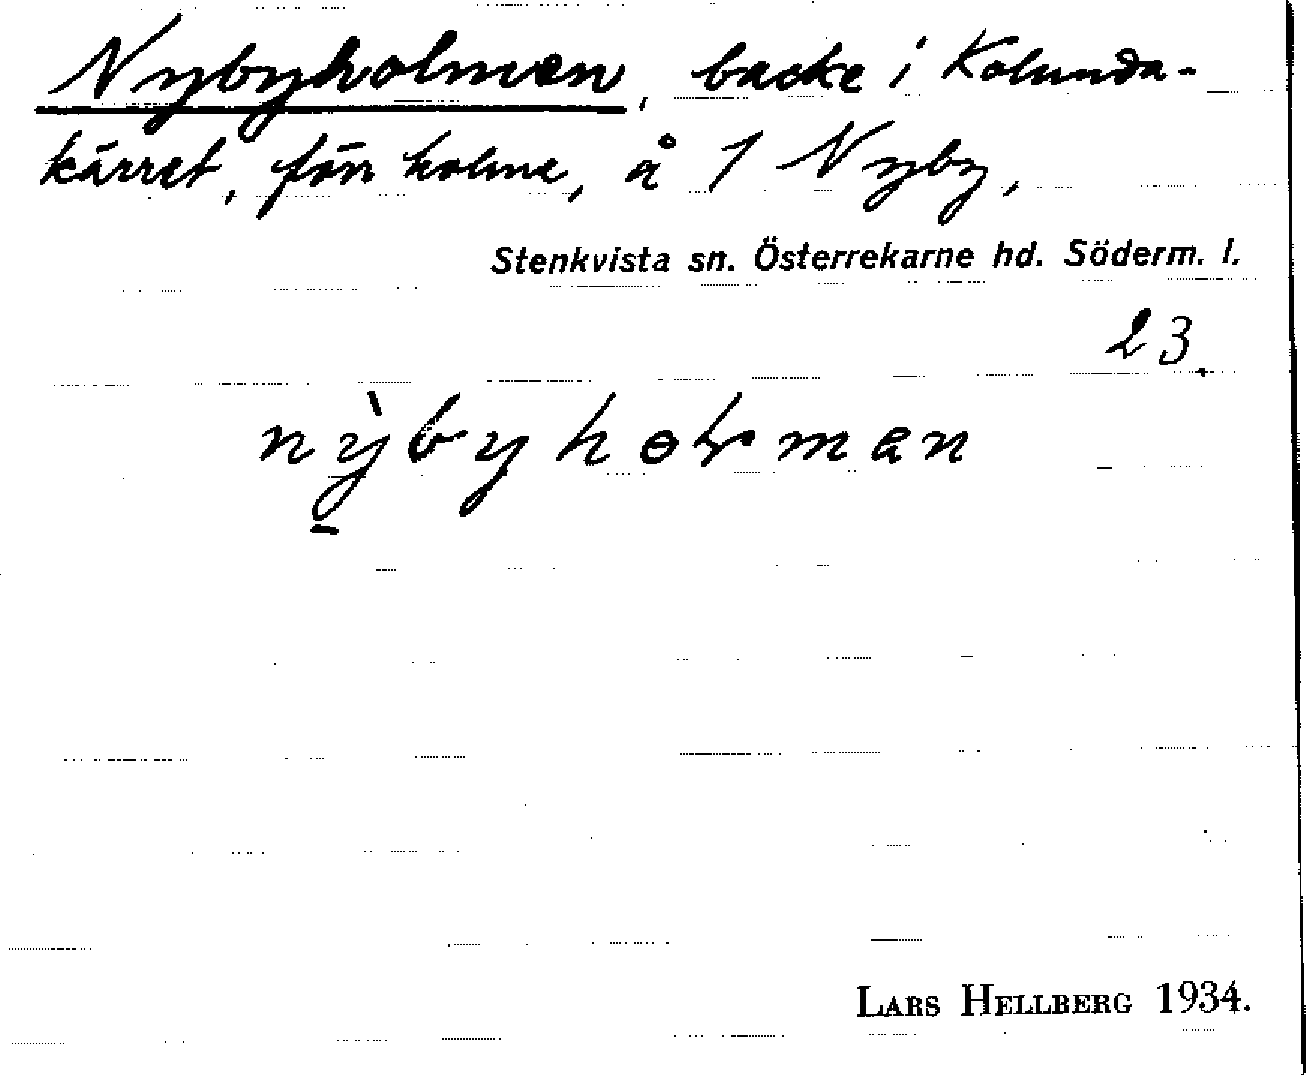 Nybyholmen, backe i Kolunda-
kärret, förr holme, å 1 Nyby,
Stenkvista sn. Österrekarne hd. Söderm. l.
23.
Lars Hellberg 1934.